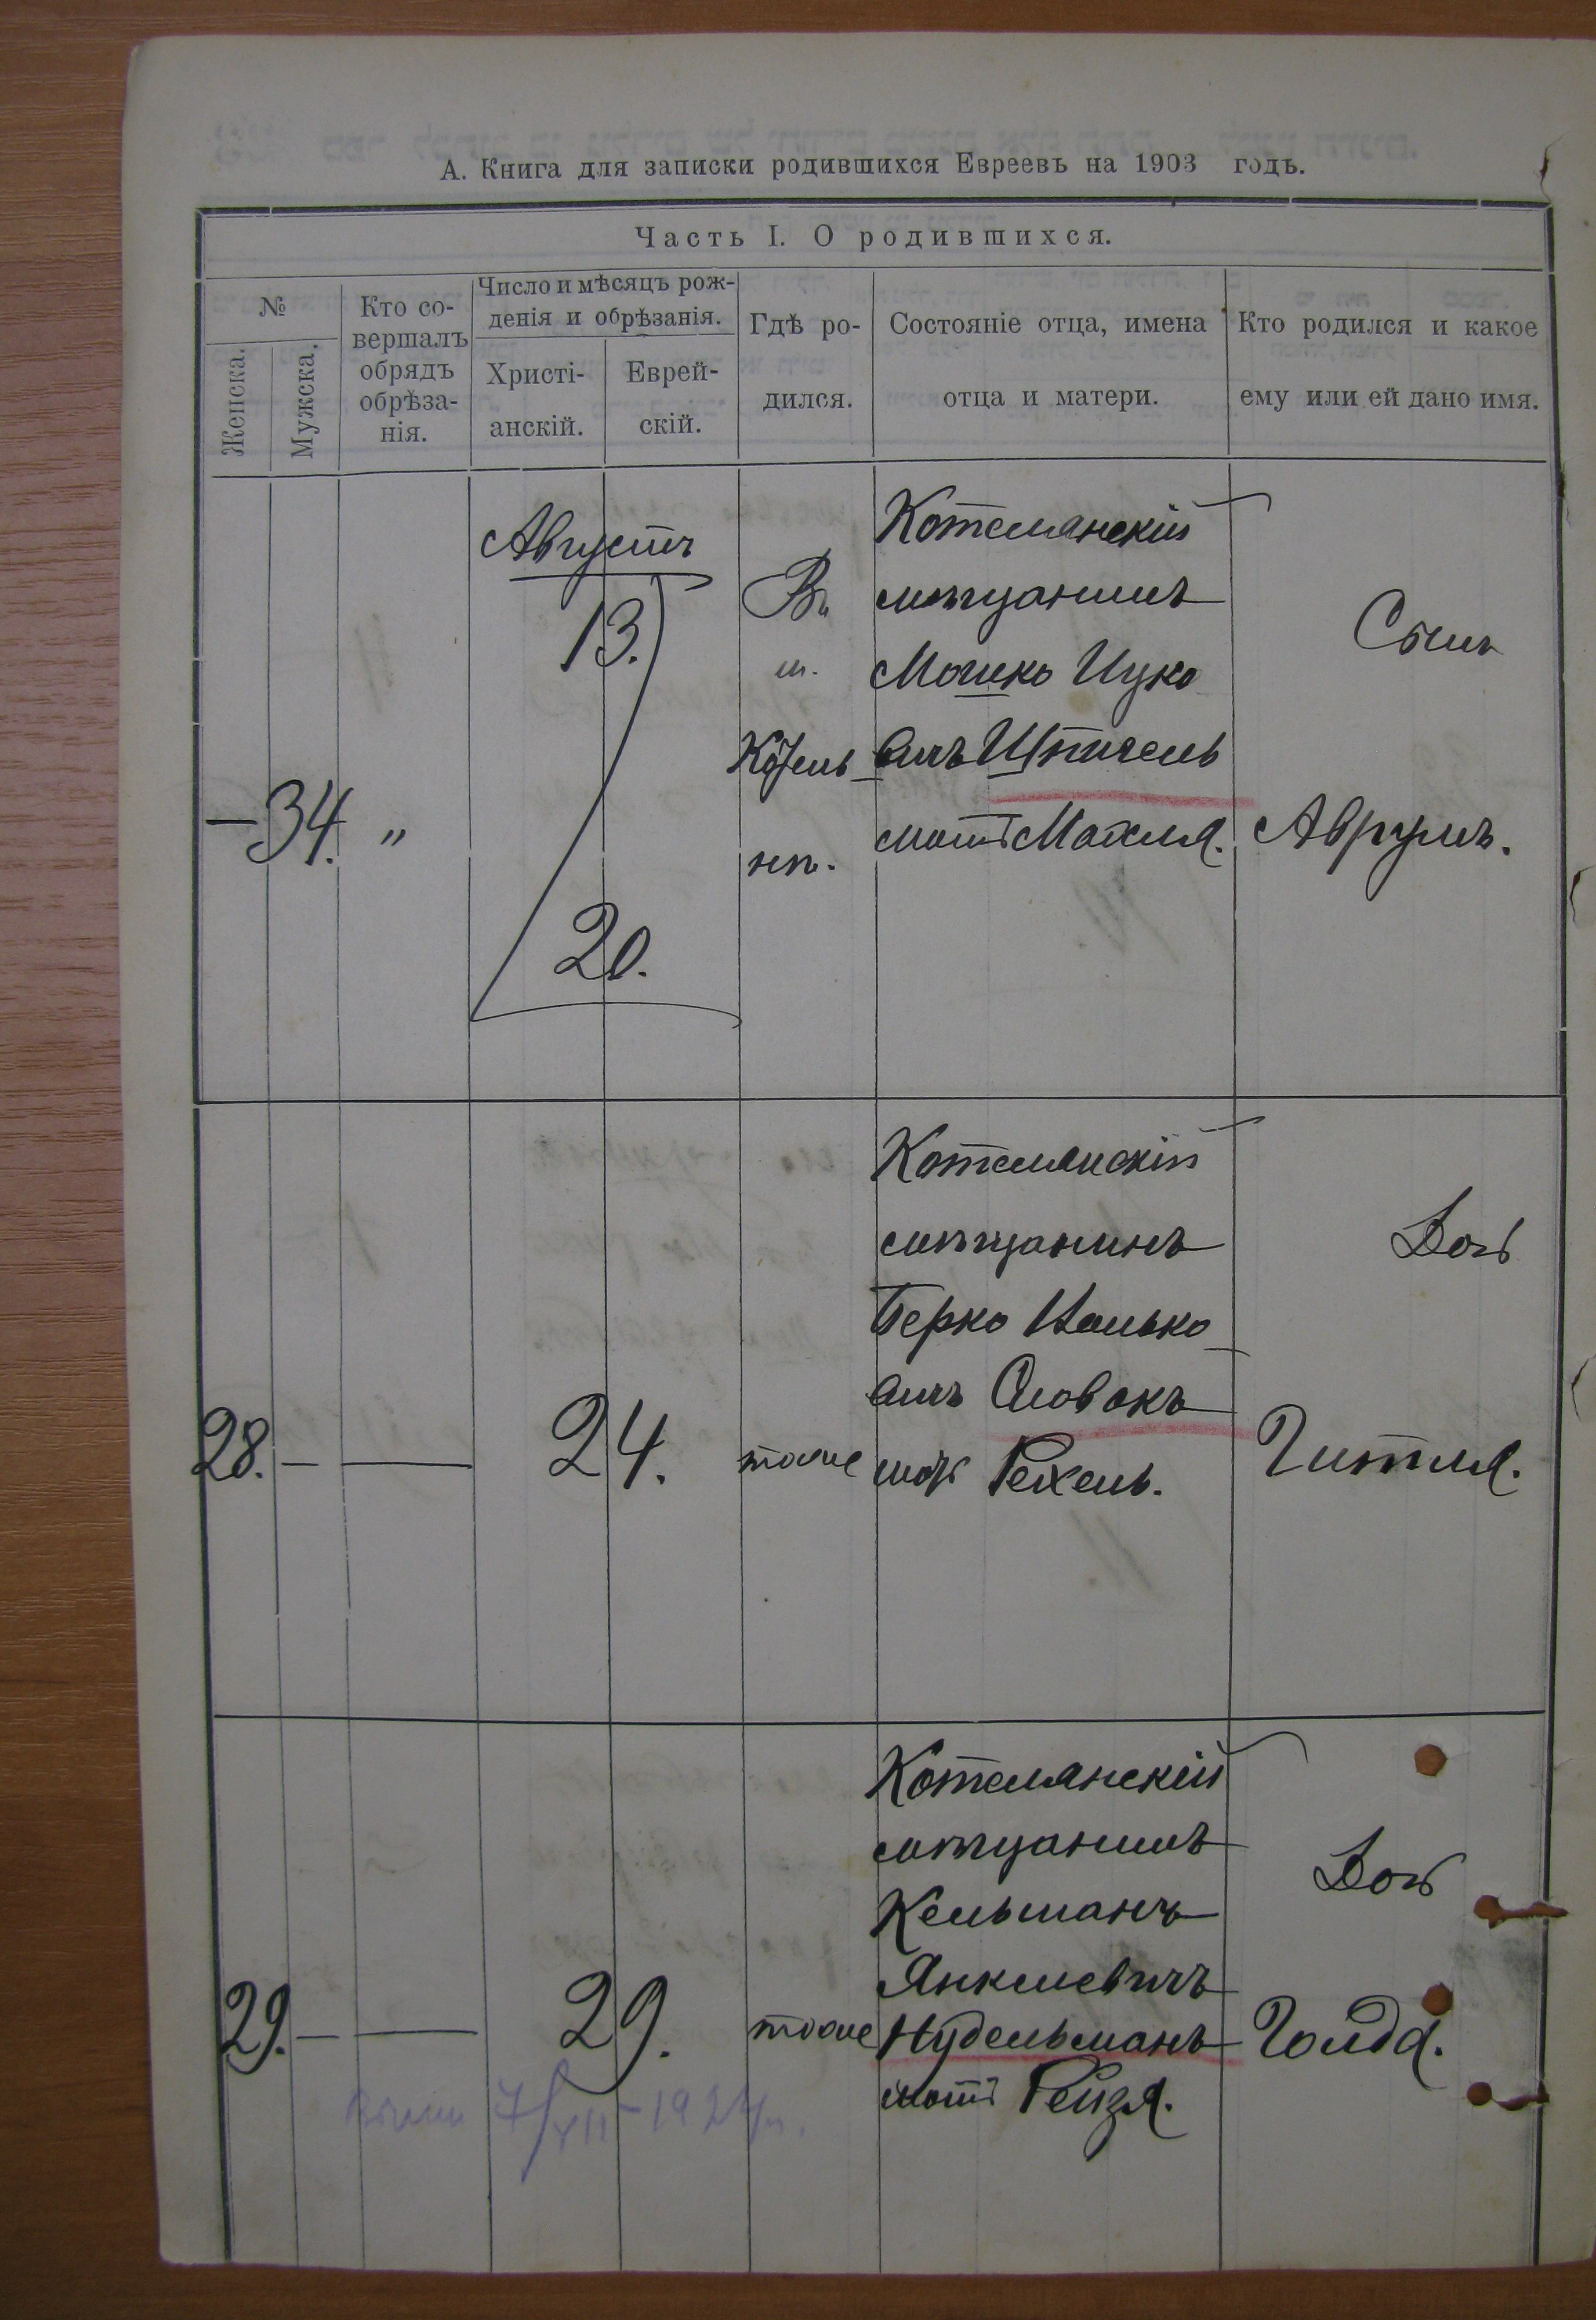 А. Книга для записки родившихся Евреевъ на 1903 годъ.
Часть I. О родившихся.
№
Женска.
Мужска.
Кто со-
вершалъ
обрядъ
обрѣза-
нія.
Число и мѣсяцъ рож-
денія и обрѣзанія.
Христі-
анскій.
Еврей-
скій.
Гдѣ ро-
дился.
Состояніе отца, имена
отца и матери.
Кто родился и какое
ему или ей дано имя.
—34. „
Августъ
13.
20.
Въ
м.
нѣ.
Котелянскій
мѣщанинъ
Мошко Ицко
вичъ Шпигель
мать Махля.
Сынъ
Аврумъ.
28. — —
24.
тоже
Котелянскій
мѣщанинъ
Берко
вичъ Словакъ
мать Рехель.
Дочь
Гитля.
29. — —
29.
тоже
Котелянскій
мѣщанинъ
Кельманъ
Янкелевичъ
Нудельманъ
мать Рейзя.
Дочь
Голда.
7/VII-1924г.